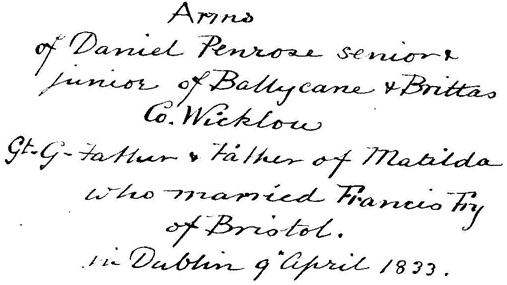 Arms
of Daniel Penrose senior &
junior of Ballycane & Brittas
Co. Wicklow
Gt-G-Father & Father of Matilda
who married Francis Fry
of Bristol.
in Dublin 9" April 1833.